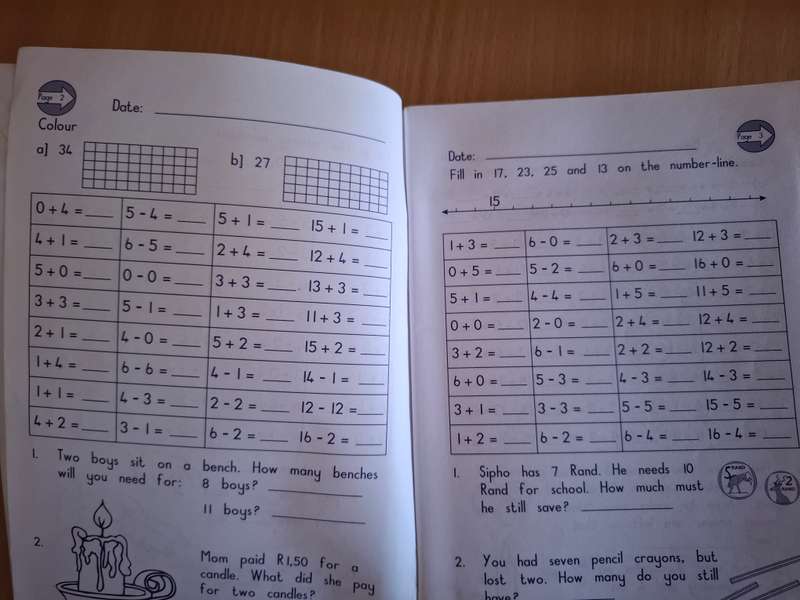 Page 2
Date: ____
Colour
a] 34
b] 27
0 + 4 = ___ 5 - 4 = ___ 5 + 1 = ___ 15 + 1 = ___
4 + 1 = ___ 6 - 5 = ___ 2 + 4 = ___ 12 + 4 = ___
5 + 0 = ___ 0 - 0 = ___ 3 + 3 = ___ 13 + 3 = ___
3 + 3 = ___ 5 - 1 = ___ 1 + 3 = ___ 11 + 3 = ___
2 + 1 = ___ 4 - 0 = ___ 5 + 2 = ___ 15 + 2 = ___
1 + 4 = ___ 6 - 6 = ___ 4 - 1 = ___ 14 - 1 = ___
1 + 1 = ___ 4 - 3 = ___ 2 - 2 = ___ 12 - 12 = ___
4 + 2 = ___ 3 - 1 = ___ 6 - 2 = ___ 16 - 2 = ___
1. Two boys sit on a bench. How many benches
will you need for: 8 boys? ____
11 boys? ____
2. Mom paid R1,50 for a
candle. What did she pay
for two candles?
Page 3
Date: ____
Fill in 17, 23, 25 and 13 on the number-line.
15
1 + 3 = ___ 6 - 0 = ___ 2 + 3 = ___ 12 + 3 = ___
0 + 5 = ___ 5 - 2 = ___ 6 + 0 = ___ 16 + 0 = ___
5 + 1 = ___ 4 - 4 = ___ 1 + 5 = ___ 11 + 5 = ___
0 + 0 = ___ 2 - 0 = ___ 2 + 4 = ___ 12 + 4 = ___
3 + 2 = ___ 6 - 1 = ___ 2 + 2 = ___ 12 + 2 = ___
6 + 0 = ___ 5 - 3 = ___ 4 - 3 = ___ 14 - 3 = ___
3 + 1 = ___ 3 - 3 = ___ 5 - 5 = ___ 15 - 5 = ___
1 + 2 = ___ 6 - 2 = ___ 6 - 4 = ___ 16 - 4 = ___
1. Sipho has 7 Rand. He needs 10
Rand for school. How much must
he still save? ____
5 RAND
2
2. You had seven pencil crayons, but
lost two. How many do you still
have? ____